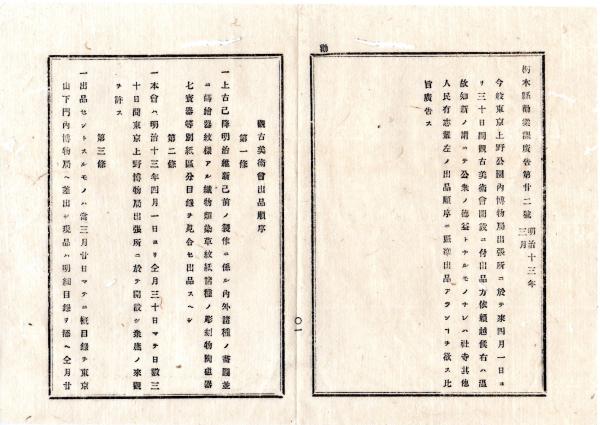 栃木縣勸業課廣告第廿二號 明治十三年三月
今般東京上野公園內博物局出張所ニ於テ來四月一日ヨ
リ三十日間觀古美術會開設ニ付出品方依賴越候右ハ溫
故知新ノ謂ニテ公衆ノ德益トナルモノナレハ社寺其他
人民有志輩左ノ出品順序ニ照準出品アランヿヲ欲ス此
旨廣告ス
勸
〇一
觀古美術會出品順序
第一條
一上古已降明治維新已前ノ製作ニ係ル內外諸種ノ書圖並
ニ蒔繪器紋樣アル織物類染草紋紙諸種ノ彫刻物陶磁器
七寳器等別紙區分目錄ヲ見合セ出品スヘシ
第二條
一本會ハ明治十三年四月一日ヨリ仝月三十日マテ日數三
十日間東京上野博物局出張所ニ於テ開設シ衆庶ノ來觀
ヲ許ス
第三條
一出品セントスルモノハ當三月廿日マテニ概目錄ヲ東京
山下門內博物局ヘ差出シ現品ハ明細目錄ヲ添ヘ仝月廿